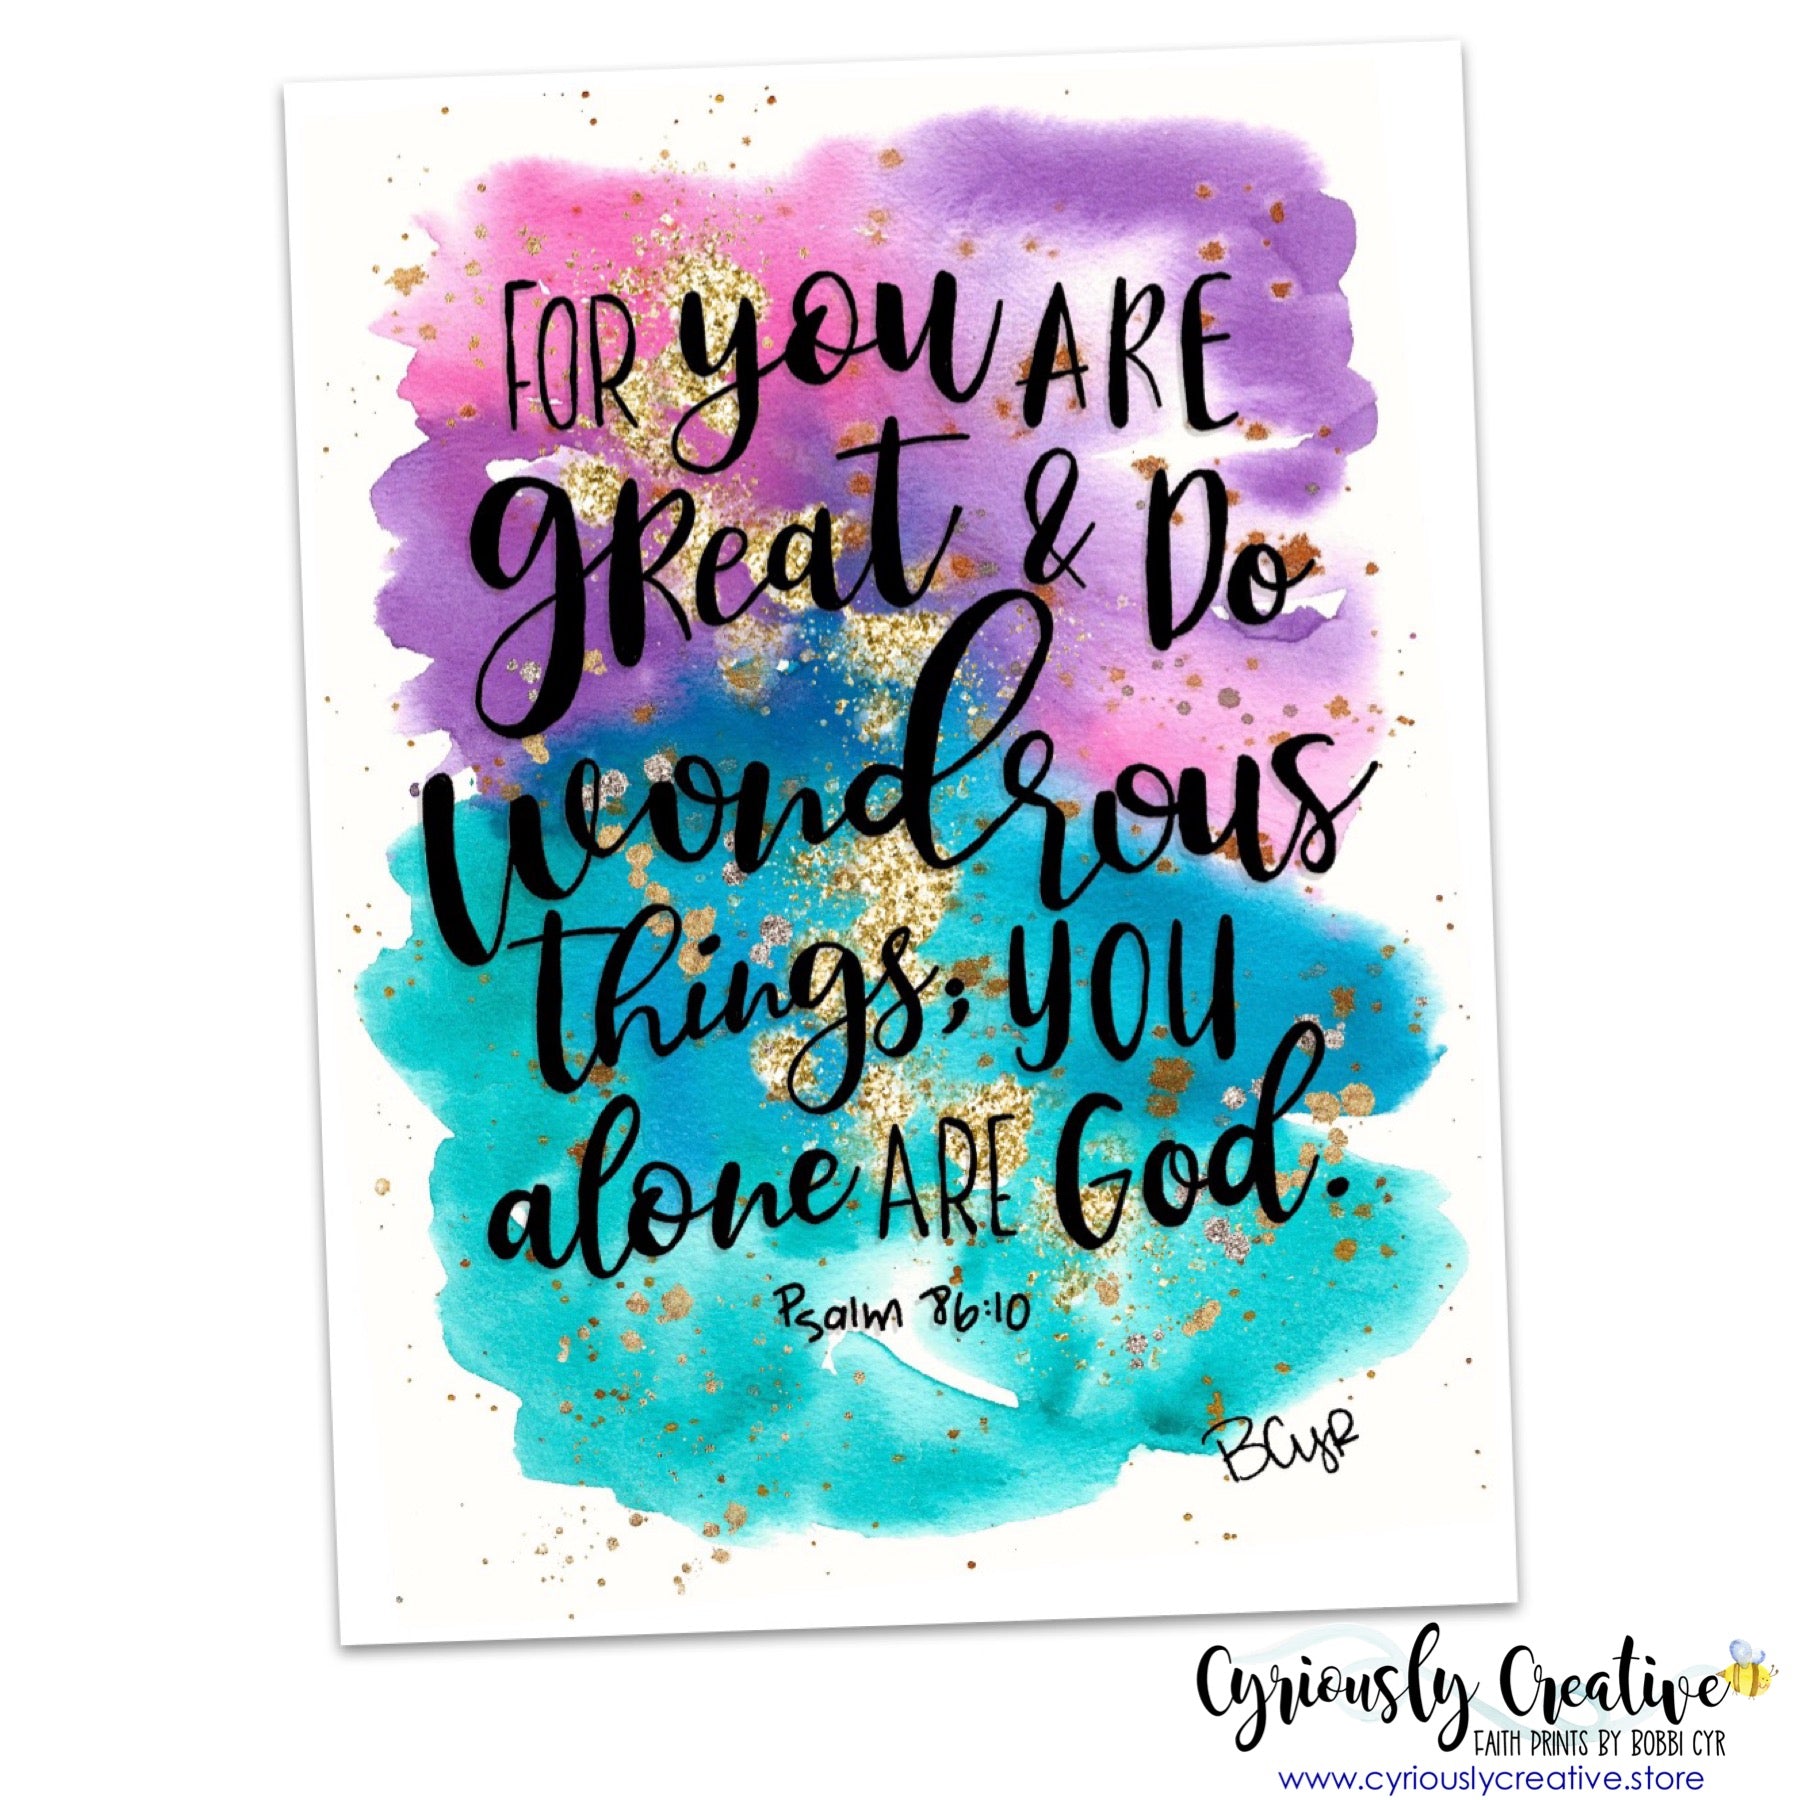 FOR you ARE
gReat & Do
wondrous
things; you
alone ARE God.
Psalm 86:10
BCyR
Cyriously Creative
FAITH PRINTS BY BOBBI CYR
www.cyriouslycreative.store